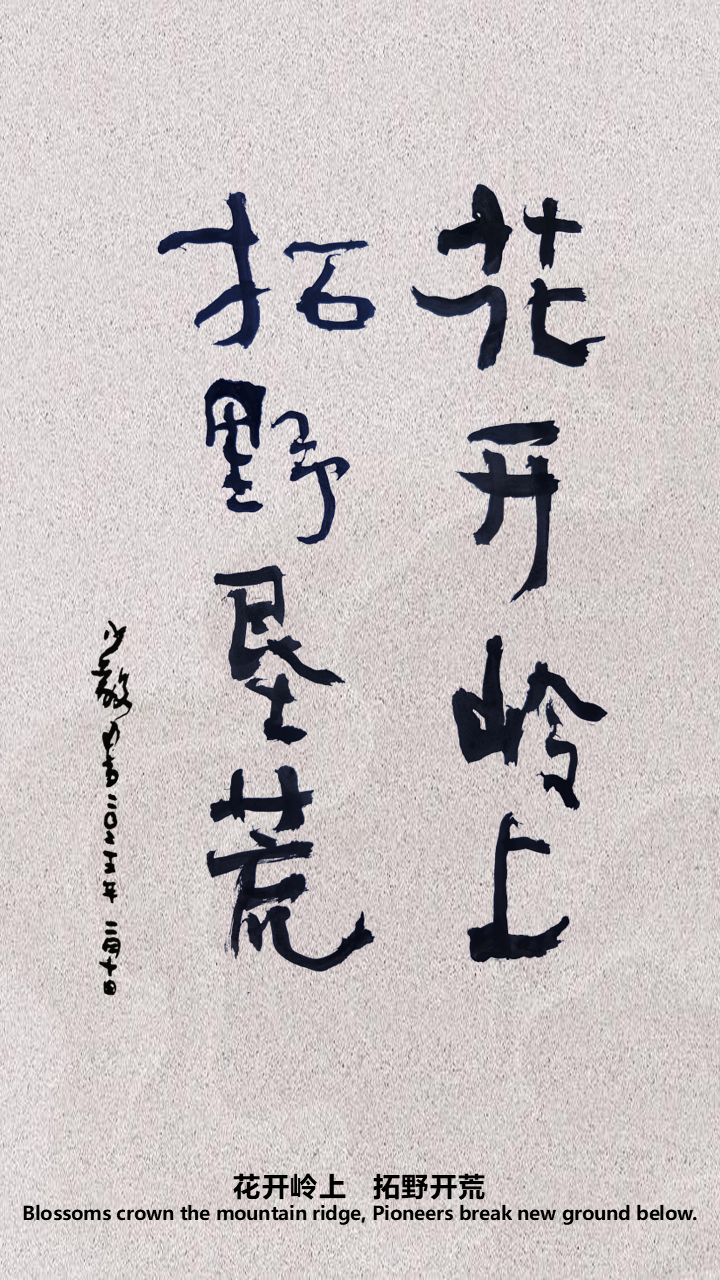 花开岭上
拓野垦荒
二〇二五年 二月十日
花开岭上 拓野开荒
Blossoms crown the mountain ridge, Pioneers break new ground below.